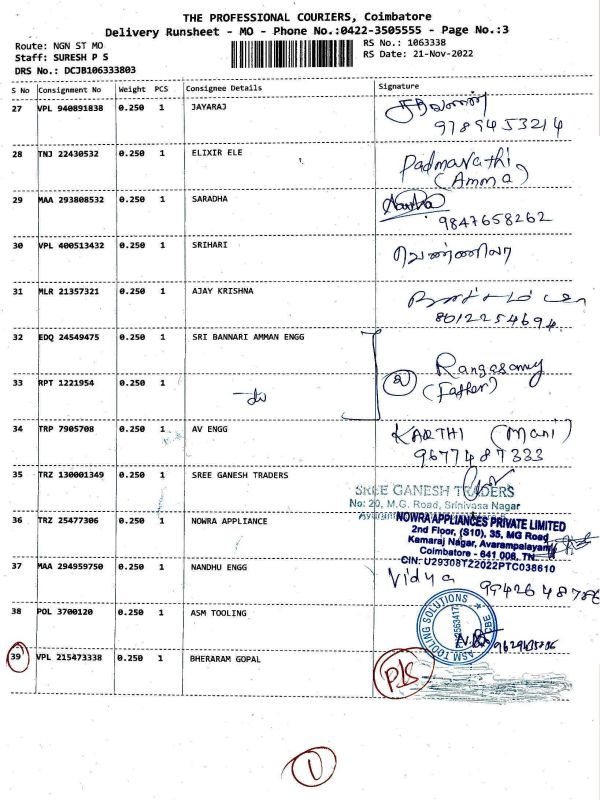 THE PROFESSIONAL COURIERS, Coimbatore
Delivery Runsheet - MO - Phone No.:0422-3505555 - Page No.:3
Route: NGN ST MO
RS No.: 1063338
Staff: SURESH P S
RS Date: 21-Nov-2022
DRS No.: DCJB106333803
S No Consignment No Weight PCS Consignee Details Signature
27 VPL 940891838 0.250 1 JAYARAJ சரவணன்
9789453214
28 TNJ 22430532 0.250 1 ELIXIR ELE Padmavathi
(Amma)
29 MAA 293808532 0.250 1 SARADHA
9847658262
30 VPL 400513432 0.250 1 SRIHARI வெண்ணிலா
31 MLR 21357321 0.250 1 AJAY KRISHNA
8012254694
32 EDQ 24549475 0.250 1 SRI BANNARI AMMAN ENGG
Rangasamy
33 RPT 1221954 0.250 1 (Father)
34 TRP 7905708 0.250 1 AV ENGG KARTHI (Mani)
9677487333
35 TRZ 130001349 0.250 1 SREE GANESH TRADERS
SREE GANESH TRADERS
No: 20, M.G. Road, Srinivasa Nagar
36 TRZ 25477306 0.250 1 NOWRA APPLIANCE
NOWRA APPLIANCES PRIVATE LIMITED
2nd Floor, (S10), 35, MG Road
Kamaraj Nagar, Avarampalayam
Coimbatore - 641 006, TN
CIN: U29308TZ2022PTC038610
37 MAA 294959750 0.250 1 NANDHU ENGG Vidya 9942648786
38 POL 3700120 0.250 1 ASM TOOLING
ASM TOOLING SOLUTIONS ★ CBE ★
39 VPL 215473338 0.250 1 BHERARAM GOPAL P/S
1